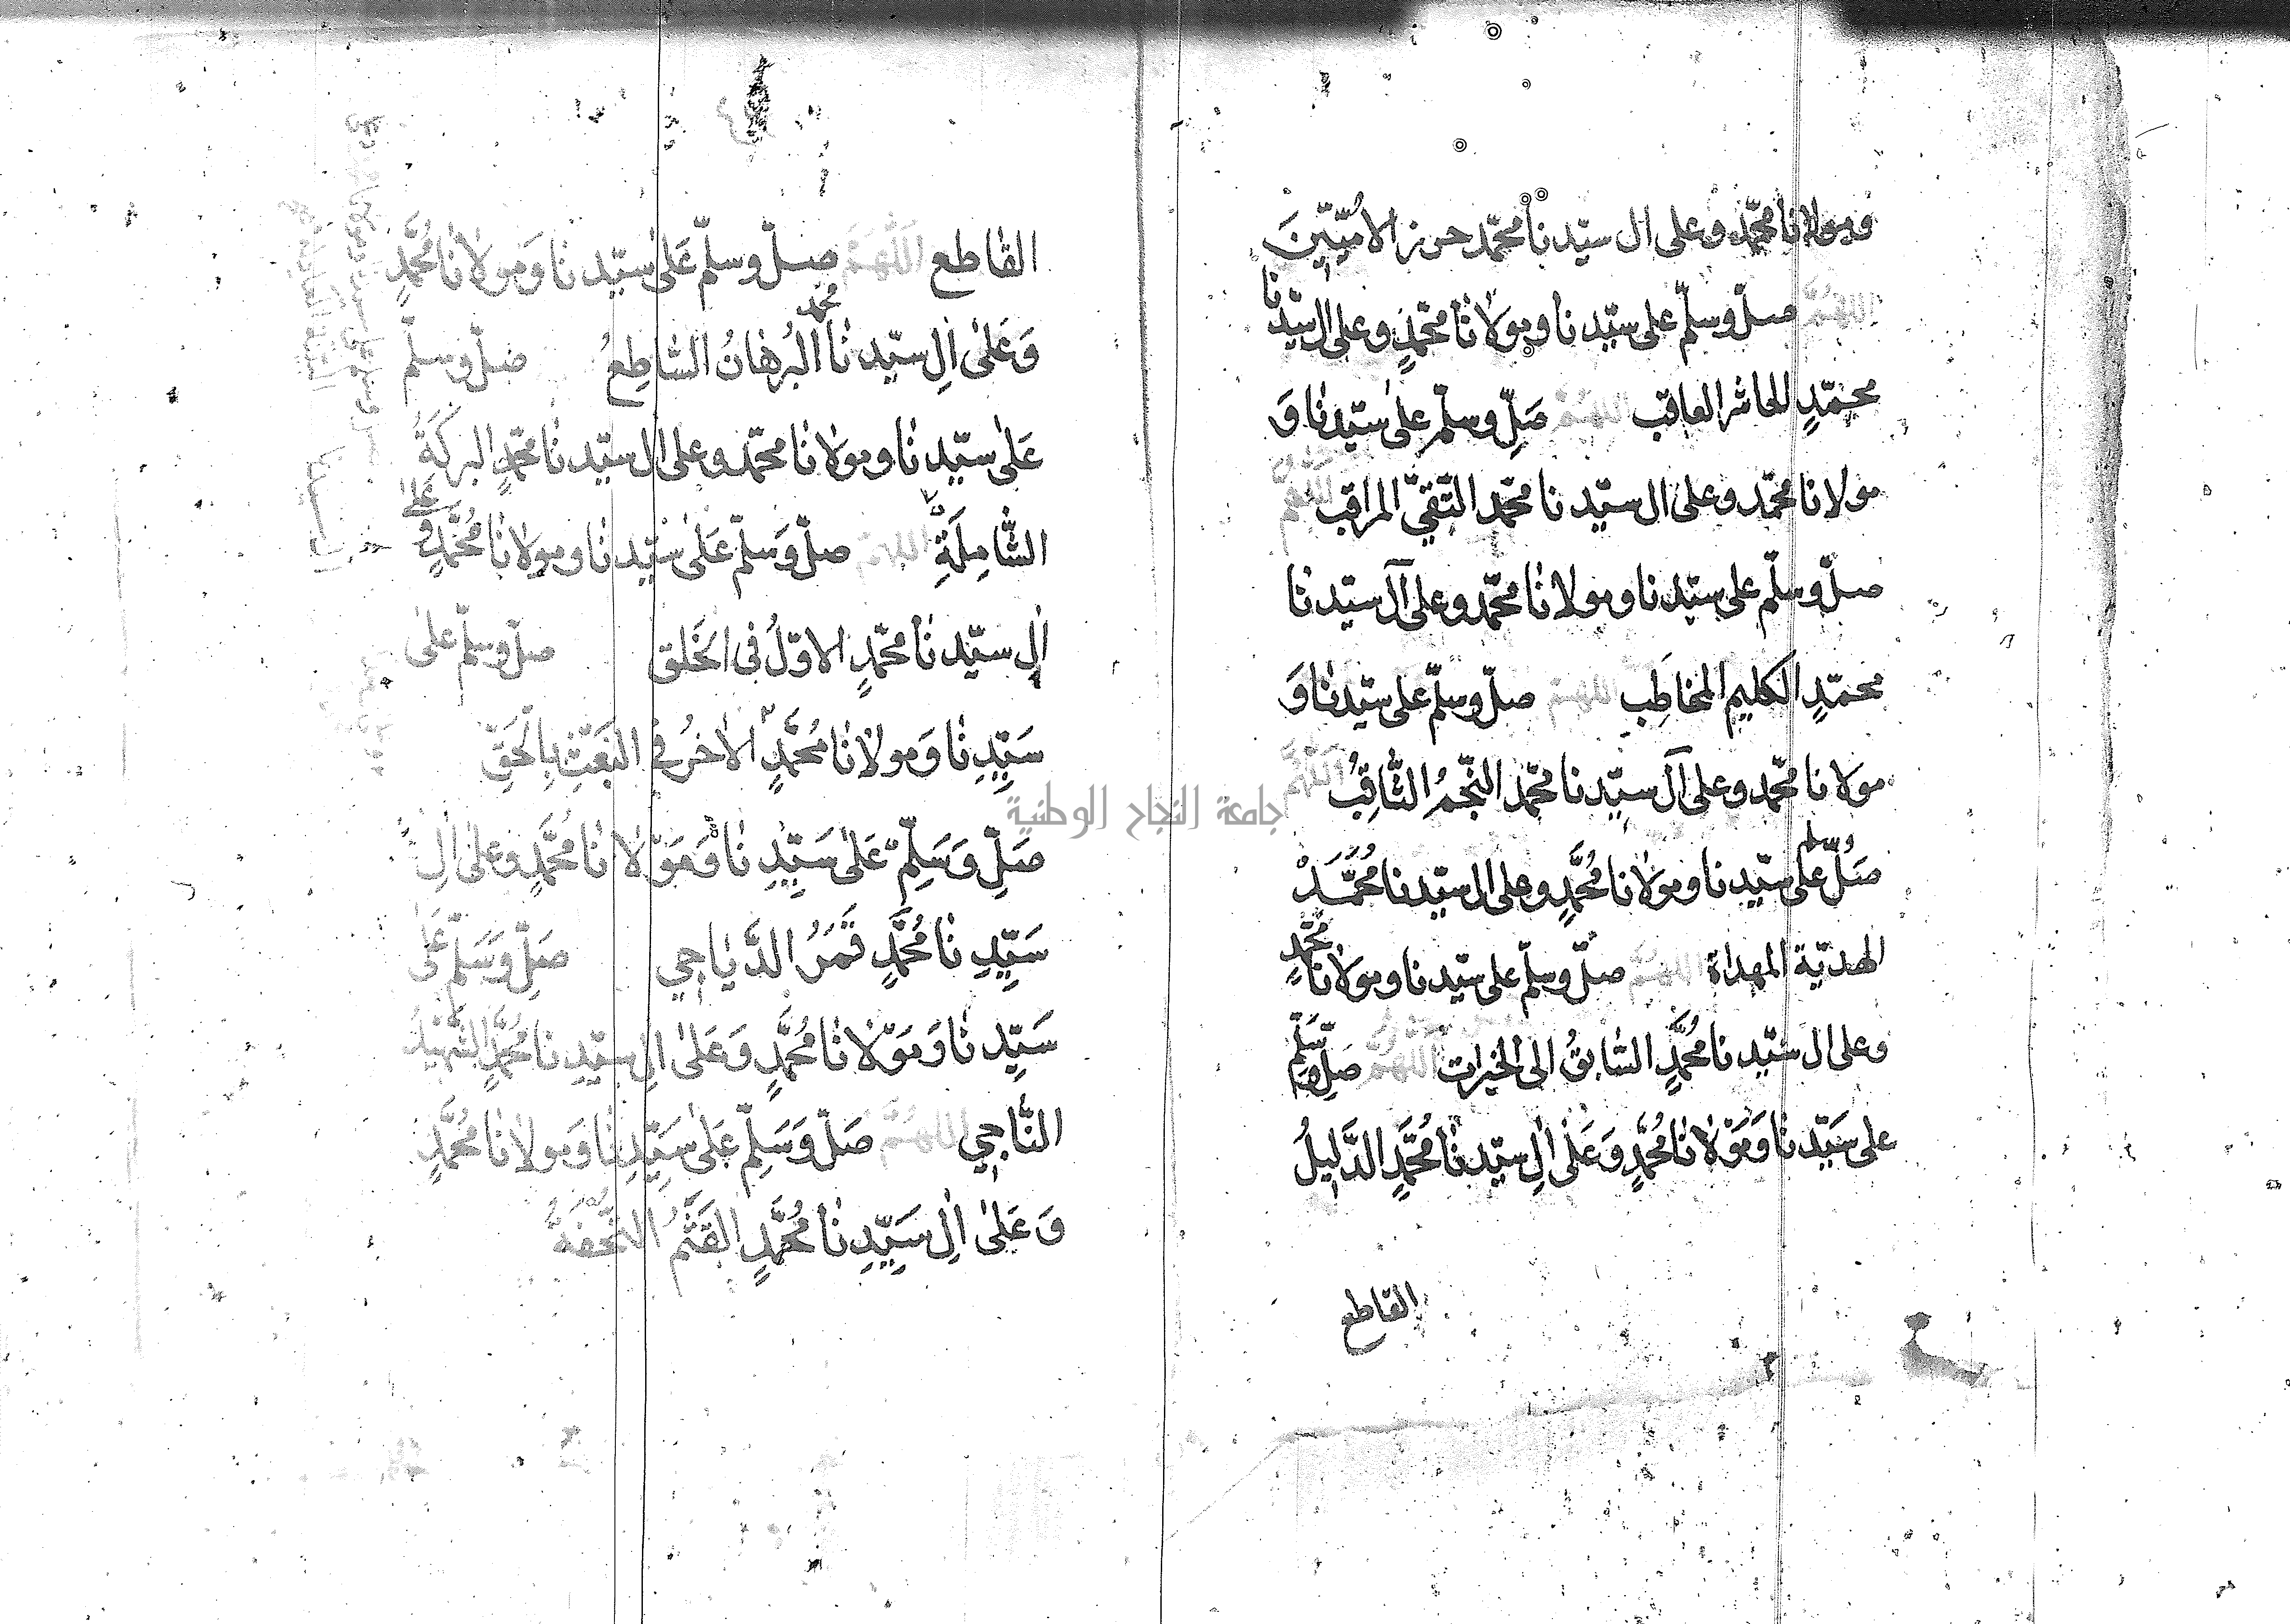 ومولانا محمّد وعلى ال سيّدنا محمّد حرز الامّيّينَ
اللهُمَّ صلّ وسلّم على سيّدنا ومولانا محمّدٍ وعلى ال سيّدنا
محمّدٍ الحاشر العاقب اللهمّ صَلِّ وسلّم على سيّدنا وَ
مولانا محمّد وعلى ال سيّدنا محمّد التّقيّ المراقب اللّهُمَّ
صلّ وسلّم على سيّدنا ومولانا محمّد وعلى آل سيّدنا
محمّدٍ الكليم المخاطَب اللهمّ صلّ وسلّم على سيّدنا وَ
مولانا محمّد وعلى آل سيّدنا محمّد النّجمُ الثّاقِبُ اللّهُمَّ
صَلِّ وسلم على سيّدنا ومولانا مُحَمَّدٍ وعلى ال سيّدنا مُحَمَّدْ
الهديّة المهداة اللهمّ صلّ وسلّم على سيّدنا ومولانا محمّدٍ
وعلى ال سيّدنا مُحَمَّدٍ السّابقُ الى الخيرات اللّهُمَّ صَلِّ وسَلِّم
على سَيّدنا وَمَوْلانا مُحَمَّدٍ وَعَلى الِ سيّدنا مُحَمَّدٍ الدَّليلُ
القاطع
القاطع اللّهُمَّ صلّ وسلّم عَلى سيّدنا وَمَولانا مُحَمَّدٍ
وَعَلى الِ سيّدنا محمد البُرهَانُ السّاطِعُ صَلّ وسلّم
عَلى سيّدنا ومَولانا محمّد وعلى ال سيّدنا محمّدٍ البركَةُ
الشّامِلَةِ اللهمّ صلّ وَسلّم عَلى سيّدنا ومولانا مُحَمَّدٍ وعَلى
الِ سيّدنا محمّدٍ الاوّلُ فى الخَلق صلّ وسلّم على
سَيّدِنا وَمولانا مُحَمَّدٍ الاخرُ في البَعَثِ بِالحَقِّ
صَلِّ وَسَلِّم عَلى سَيّدِنا وَمَوْلانا مُحَمَّدٍ وعلى الِ
سَيّدِنا مُحَمَّدٍ قَمَرُ الدَّيَاجِي صَلِّ وَسَلّم عَلى
سَيّدنا وَمَوْلانا مُحَمَّدٍ وَعَلى الِ سيّدِنا مُحَمَّدٍ الشَّهِيدُ
النَّاجِي اللهُمَّ صَلّ وَسَلِّم عَلى سَيِّدِنا وَمولانا مُحَمَّدٍ
وَعَلى الِ سَيّدِنا مُحَمَّدٍ القَثَمُ التُّحْفَةُ
جامعة النجاح الوطنية